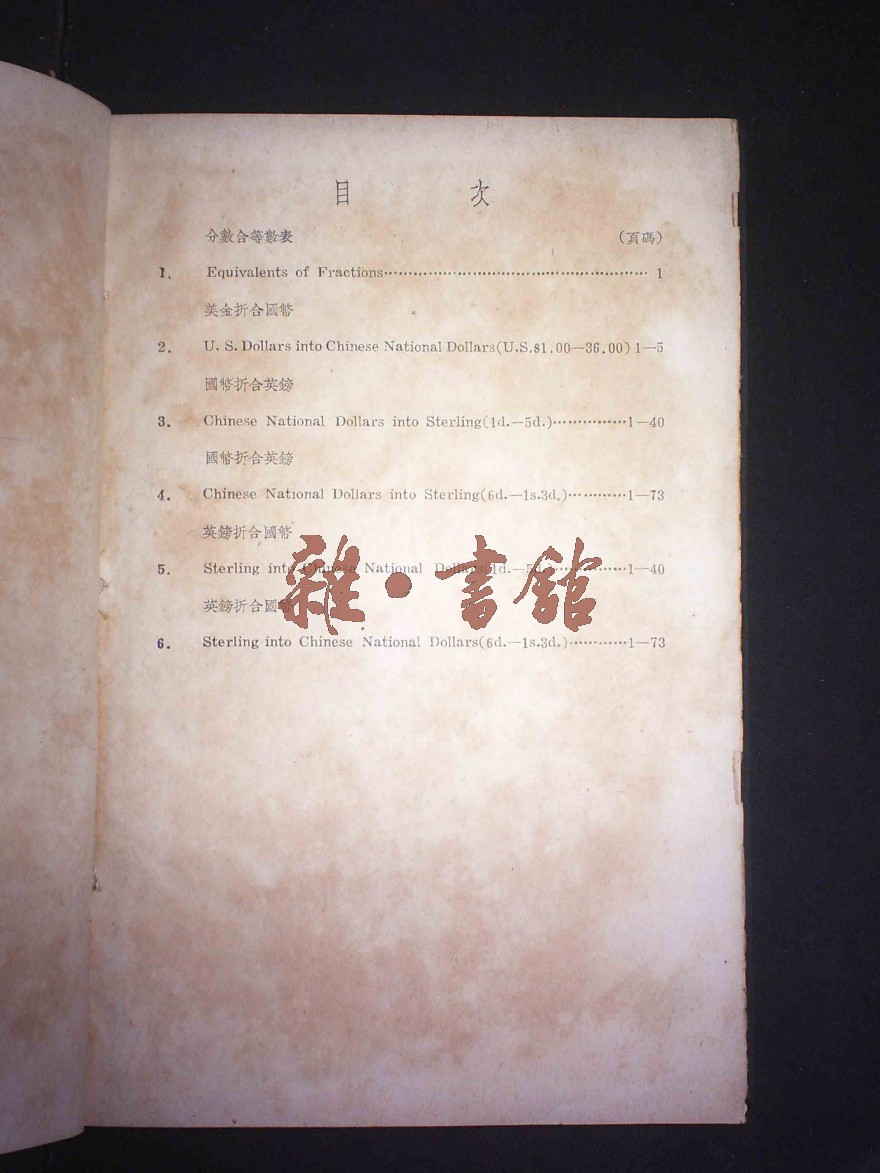 目 次
分數合等數表 (頁碼)
1. Equivalents of Fractions 1
美金折合國幣
2. U. S. Dollars into Chinese National Dollars(U.S.$1.00—36.00) 1—5
國幣折合英鎊
3. Chinese National Dollars into Sterling(1d.—5d.) 1—40
國幣折合英鎊
4. Chinese National Dollars into Sterling(6d.—1s.3d.) 1—73
英鎊折合國幣
5. Sterling into Chinese National Dollars(1d.—5d.) 1—40
雜·書館
英鎊折合國幣
6. Sterling into Chinese National Dollars(6d.—1s.3d.) 1—73